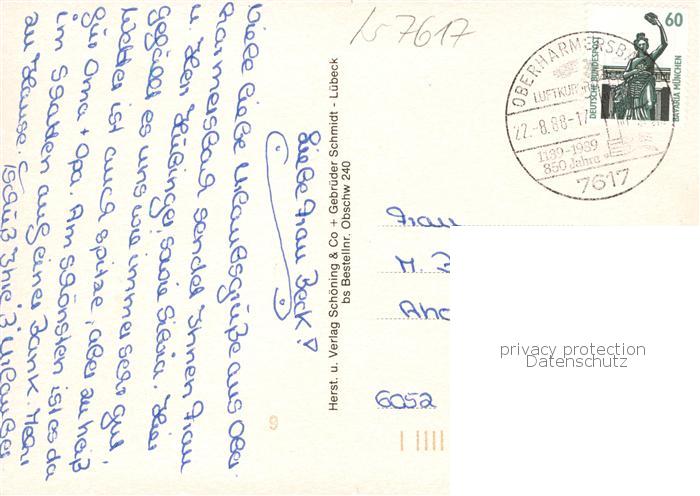 Liebe Frau Beck!
Viele liebe Urlaubsgrüße aus Ober-
harmersbach sendet Ihnen Frau
u. Herr Hübinger sowie Silvia. Hier
gefällt es uns wie immer sehr gut,
Wetter ist auch spitze, aber zu heiß
für Oma + Opa. Am schönsten ist es da
im Schatten auf einer Bank. Mehr
zu Hause.
Tschüß Ihre 3 Urlauber
Herst. u. Verlag Schöning & Co + Gebrüder Schmidt - Lübeck
bs Bestellnr. Obschw 240
7617
60
DEUTSCHE BUNDESPOST
BAVARIA MÜNCHEN
OBERHARMERSBA
LUFTKUR
22.-8.88-17
1139-1989
850 Jahre
7617
Frau
M.
6052
9
privacy protection
Datenschutz